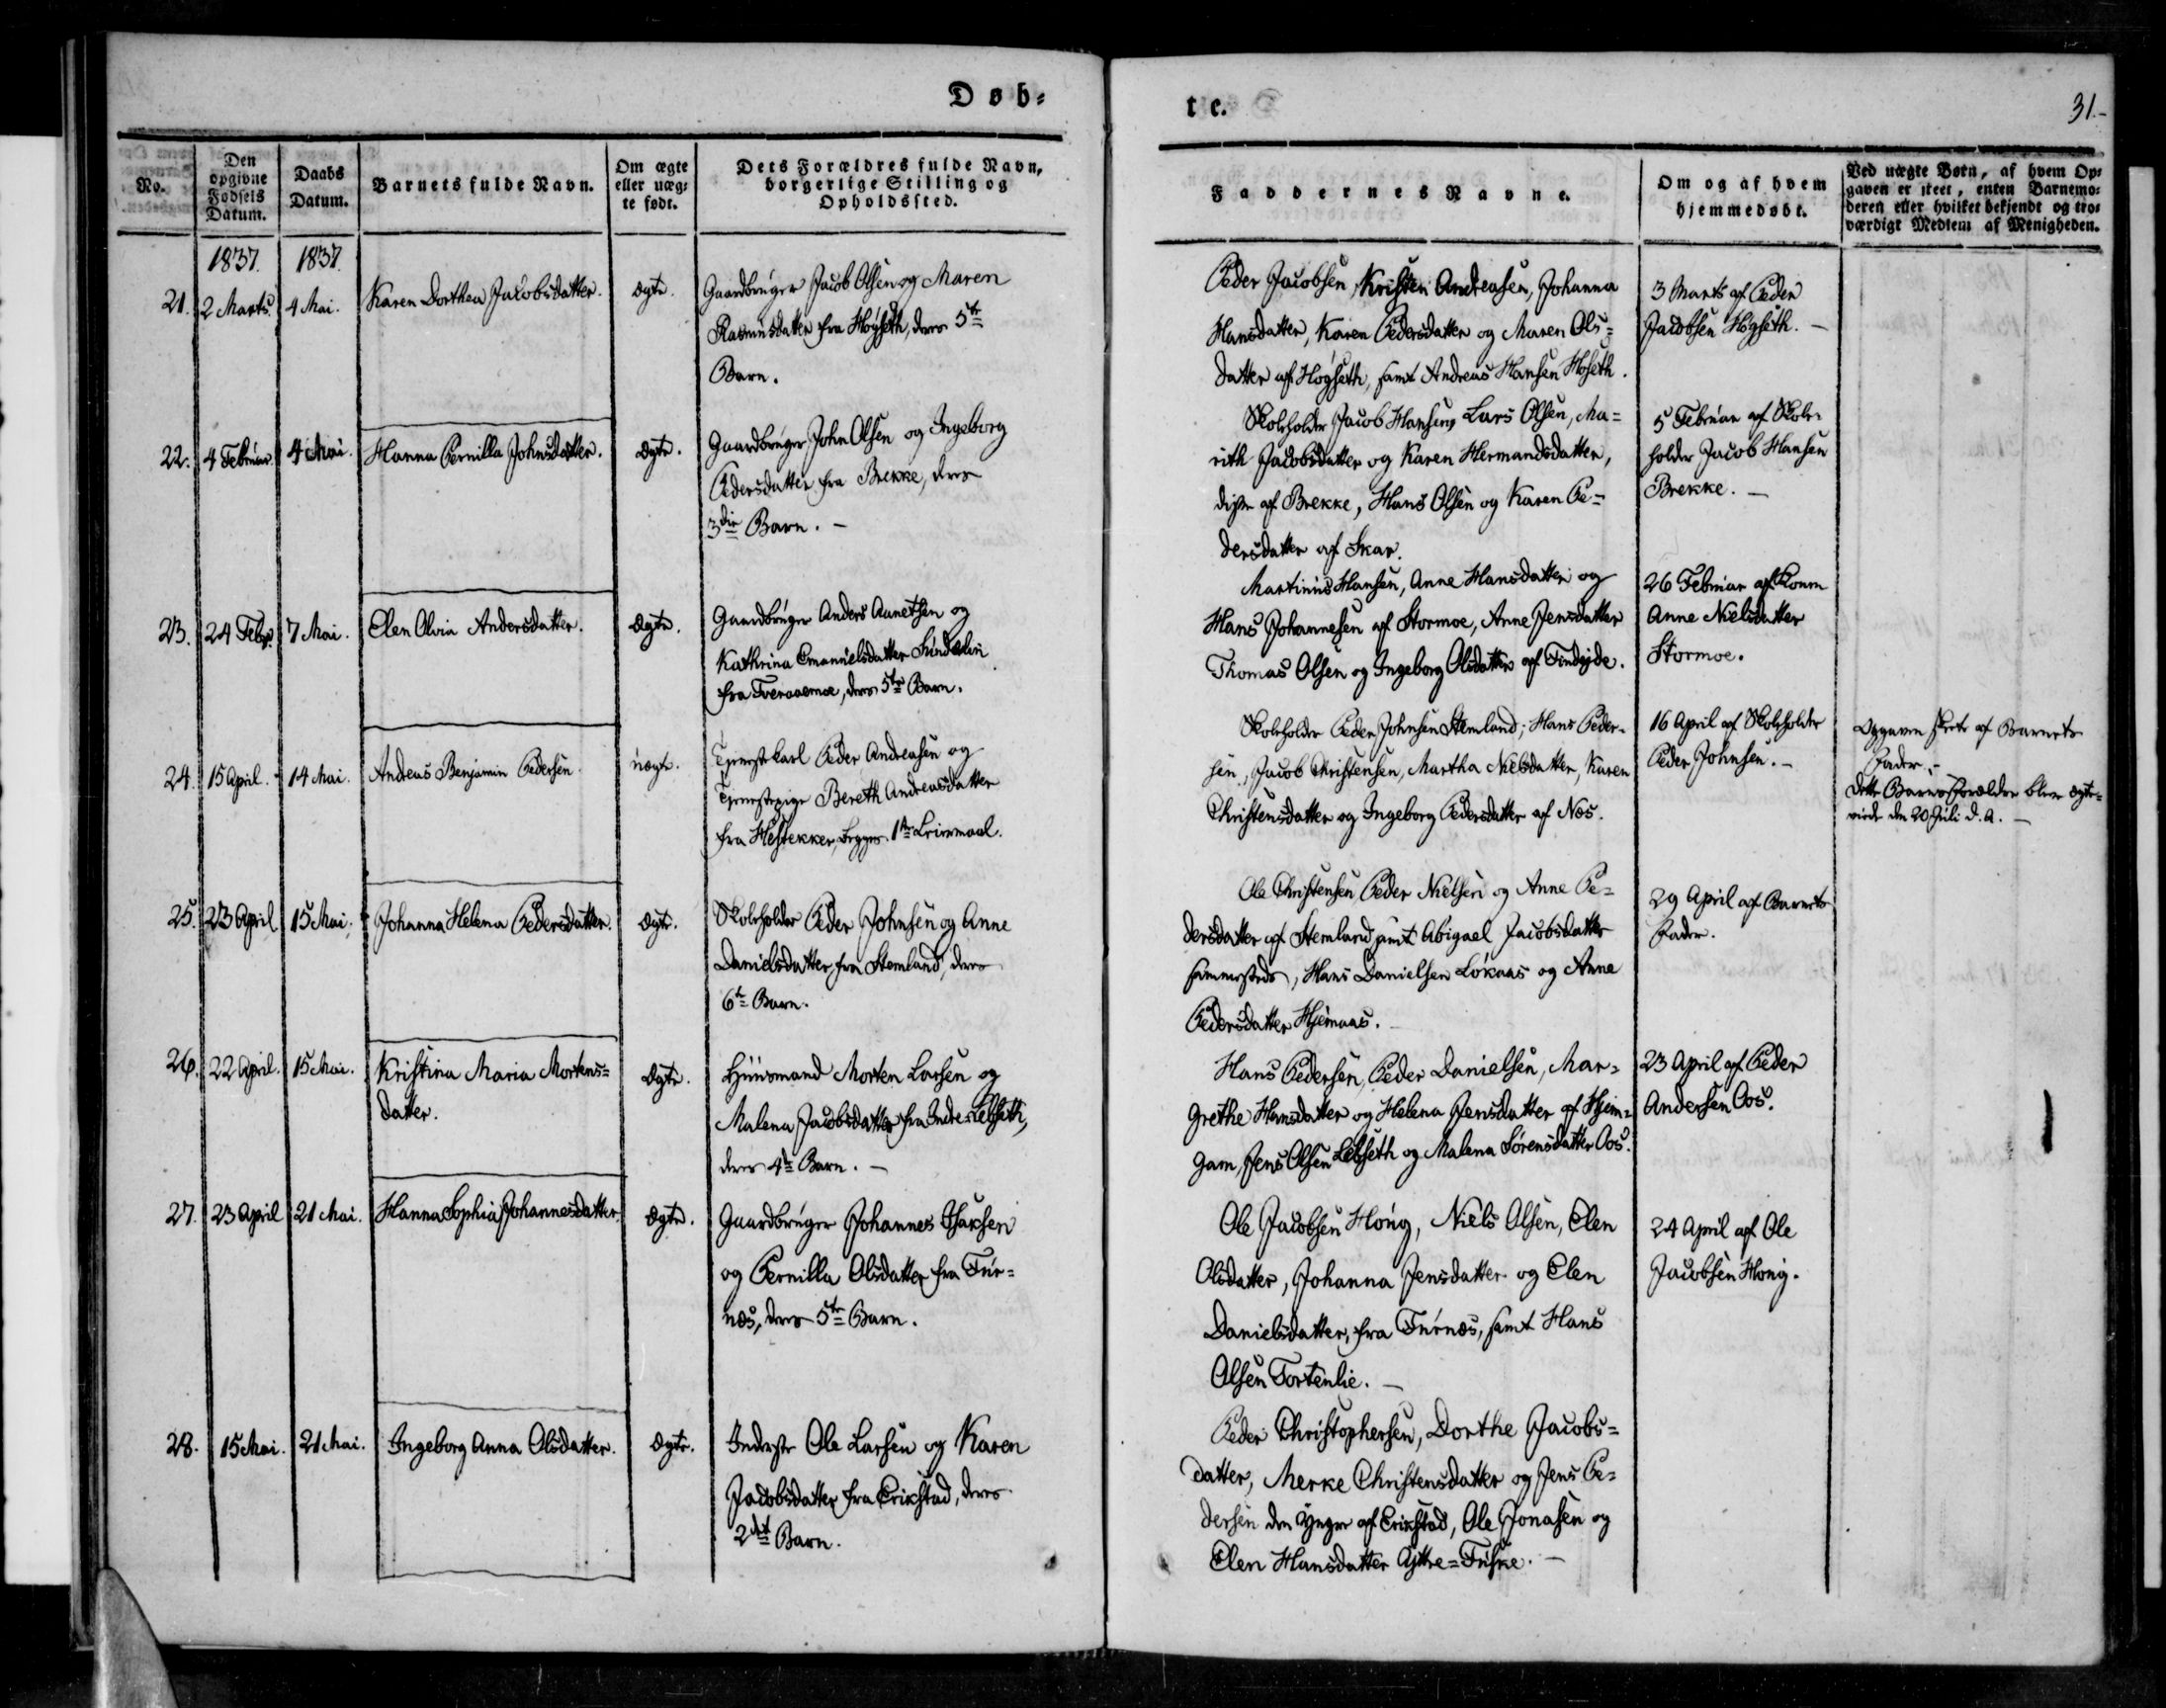 Døb=
te.
31.-
No.
Den opgivne Fødsels Datum.
Daabs Datum.
Barnets fulde Navn.
Om ægte eller uæg= te født.
Dets Forældres fulde Navn, borgerlige Stilling og Opholdssted.
Faddernes Navne.
Om og af hvem hjemmedøbt.
Ved uægte Børn, af hvem Op=
gaven er skeet, enten Barnemo=
deren eller hvilket bekjendt og tro=
værdigt Medlem af Menigheden.
1837. 1837.
21. 2 Marts. 4 Mai. Karen Dorthea Jakobsdatter. Ægte.
Gaardbruger Jacob Olsen og Maren
Rasmusdatter fra Høgseth, deres 5te
Barn.
Peder Jacobsen, Kristen Andreasen, Johanna
Hansdatter, Karen Pedersdatter og Maren Ols=
datter af Høgseth, samt Andreas Hansen Høseth.
3 Marts af Peder
Jacobsen Høgseth. —
22. 4 Februar. 4 Mai. Hanna Pernilla Johnsdatter. Ægte.
Gaardbruger John Olsen og Ingeborg
Pedersdatter fra Brekke, deres
3die Barn. —
Skoleholder Jacob Hansen, Lars Olsen, Ma=
rith Jacobsdatter og Karen Hermandsdatter,
disse af Brekke, Hans Olsen og Karen Pe=
dersdatter af Skar.
5 Februar af Skole-
holder Jacob Hansen
Brekke. —
23. 24 Febr. 7 Mai. Elen Olvia Andersdatter. Ægte.
Gaardbruger Anders Aunetsen og
Kathrina Emanuelsdatter
fra Tveraaemoe, deres 5te Barn.
Martinus Hansen, Anne Hansdatter og
Hans Johannesen af Stormoe, Anne Jensdatter
Thomas Olsen og Ingeborg Olsdatter af Findøjde.
26 Februar af Konen
Anne Nielsdatter
Stormoe.
24. 15 April. 14 Mai. Andreas Benjamin Pedersen. uægte.
Tjenestkarl Peder Andreasen og
Tjenestepige Bereth Andreasdatter
fra Hestekker, begges 1te Leiermaal.
Skoleholder Peder Johnsen Stemland; Hans Peder-
sen, Jacob Christensen, Martha Nielsdatter, Karen
Christensdatter og Ingeborg Pedersdatter af Næs.
16 April af Skoleholder
Peder Johnsen. —
Opgaven skete af Barnets
Fader. —
Dette Barns Forældre bleve ægte=
viede den 20 Juli d. A. —
25. 23 April 15 Mai. Johanna Helena Pedersdatter. Ægte.
Skoleholder Peder Johnsen og Anne
Danielsdatter fra Stemland, deres
6te Barn.
Ole Christensen Peder Nielsen og Anne Pe=
dersdatter af Stemland samt Abigael Jacobsdatter
sammesteds, Hans Danielsen Løkaas og Anne
Pedersdatter Hjemaas.
29 April af Barnets
Fader.
26. 22 April. 15 Mai. Kristina Maria Mortens=
datter. Ægte.
Huusmand Morten Larsen og
Malena Jacobsdatter fra Indre Lebseth,
deres 4de Barn. —
Hans Pedersen, Peder Danielsen, Mar=
grethe Hansdatter og Helena Jensdatter af Hjem=
gam, Jens Olsen Lebseth og Malena Sørensdatter Oos.
23 April af Peder
Andersen Oos.
27. 23 April 21 Mai. Hanna Sophia Johannesdatter. Ægte.
Gaardbruger Johannes Isaksen
og Pernilla Olsdatter fra Tur=
næs, deres 5te Barn.
Ole Jacobsen Houg, Niels Olsen, Elen
Olsdatter, Johanna Jensdatter og Elen
Danielsdatter, fra Turnæs, samt Hans
Olsen Tortenlie. —
24 April af Ole
Jacobsen Houg.
28. 15 Mai. 21 Mai. Ingeborg Anna Olsdatter. Ægte.
Inderste Ole Larsen og Karen
Jacobsdatter fra Erikstad, deres
2det Barn.
Peder Christophersen, Dorthe Jacobs=
datter, Merke Christensdatter og Jens Pe=
dersen den Yngre af Erikstad, Ole Jonasen og
Elen Hansdatter Ytre=Fiske. —